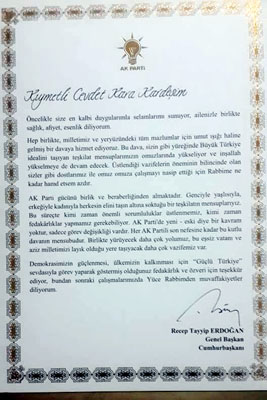 AK PARTİ
Kıymetli Cevdet Kara Kardeşim
Öncelikle size en kalbi duygularımla selamlarımı sunuyor, ailenizle birlikte
sağlık, afiyet, esenlik diliyorum.
Hep birlikte, milletimiz ve yeryüzündeki tüm mazlumlar için umut ışığı haline
gelmiş bir davaya hizmet ediyoruz. Bu dava, sizin gibi yüreğinde Büyük Türkiye
idealini taşıyan teşkilat mensuplarımızın omuzlarında yükseliyor ve inşallah
yükselmeye de devam edecek. Üstlendiği vazifelerin öneminin bilincinde olan
sizler gibi dostlarımız ile omuz omuza çalışmayı nasip ettiği için Rabbime ne
kadar hamd etsem azdır.
AK Parti gücünü birlik ve beraberliğinden almaktadır. Genciyle yaşlısıyla,
erkeğiyle kadınıyla herkesin elini taşın altına soktuğu bir teşkilatın mensuplarıyız.
Bu süreçte kimi zaman önemli sorumluluklar üstlenmemiz, kimi zaman
fedakârlıklar yapmamız gerekebiliyor. AK Parti'de yeni - eski diye bir kavram
yoktur, sadece görev değişikliği vardır. Her AK Partili son nefesine kadar bu kutlu
davanın mensubudur. Birlikte yürüyecek daha çok yolumuz, bu eşsiz vatanı ve
aziz milletimizi layık olduğu yere taşıyacak daha çok vazifemiz var.
Demokrasimizin güçlenmesi, ülkemizin kalkınması için "Güçlü Türkiye"
sevdasıyla görev yaparak göstermiş olduğunuz fedakârlık ve özveri için teşekkür
ediyor, bundan sonraki çalışmalarınızda Yüce Rabbimden muvaffakiyetler
diliyorum.
Recep Tayyip ERDOĞAN
Genel Başkan
Cumhurbaşkanı